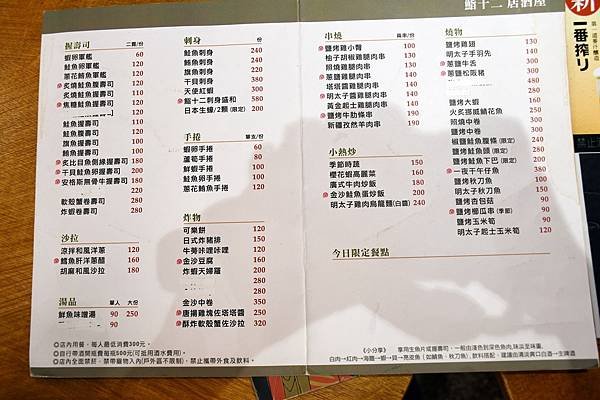 鮨十二 居酒屋
握壽司 二貫/份
蝦卵軍艦 60
鮭魚卵軍艦 120
蔥花鮪魚軍艦 120
炙燒鮭魚腹壽司 120
焦糖鮭魚握壽司 120
鮭魚握壽司 100
鮭魚腹壽司 110
旗魚握壽司 100
鮪魚握壽司 110
炙比目魚側緣握壽司 180
干貝鮭魚卵握壽司 200
安格斯無骨牛握壽司 180
軟殼蟹卷壽司 280
炸蝦卷壽司 280
沙拉
涼拌和風洋蔥 120
鱈魚肝洋蔥醋 160
胡麻和風沙拉 180
湯品 單人 大份
鮮魚味噌湯 90 250
90
刺身 份
鮭魚刺身 240
鮪魚刺身 240
旗魚刺身 200
干貝刺身 350
天使紅蝦 300
鮨十二刺身盛和 580
日本生蠔/2顆(限定) 240
手捲 單支/份
蝦卵手捲 60
蘆筍手捲 60
鮮蝦手捲 80
鮭魚卵手捲 100
蔥花鮪魚手捲 100
炸物
可樂餅 120
日式炸豬排 150
牛蒡咔哩咔哩 120
金沙豆腐 160
炸蝦天婦羅 200
金沙中卷 350
唐揚雞塊佐塔塔醬 250
酥炸軟殼蟹佐沙拉 320
串燒 兩串/份
鹽烤雞小臀 100
柚子胡椒雞腿肉串 130
照燒雞腿肉串 130
蔥燒雞腿肉串 130
塔塔醬雞腿肉串 130
明太子雞腿肉串 140
黃金起士雞腿肉串 140
鹽烤牛肋條串 190
新疆孜然羊肉串 190
小熱炒
季節時蔬 150
櫻花蝦高麗菜 160
廣式牛肉炒飯 180
金沙鮭魚蛋炒飯 200
明太子雞肉烏龍麵(白醬) 240
今日限定餐點
燒物
鹽烤雞翅 130
明太子手羽先 140
蔥鹽牛舌 300
蔥鹽松阪豬 300
鹽烤大蝦 180
火炙挪威鯖花魚 250
照燒中卷 300
鹽烤中卷 300
椒鹽鮭魚腹條(限定) 240
鹽烤鮭魚頭(限定) 280
鹽烤鮭魚下巴(限定) 200
一夜干午仔魚 380
鹽烤秋刀魚 100
明太子秋刀魚 150
鹽烤杏包菇 90
鹽烤櫛瓜串(季節) 90
鹽烤玉米筍 90
明太子起士玉米筍 120
◎店內用餐，每人最低消費300元。
◎自行帶酒開瓶費每瓶500元(可抵用酒水費用)。
◎店內全面禁菸，禁帶寵物入內(戶外區不限制)，禁止攜帶外食及飲料。
《小分享》 享用生魚片或握壽司，一般由淺色到深色魚肉,味淡至味重.
白肉→紅肉→海膽→蝦→貝→亮皮魚(如鯖魚、秋刀魚)，飲料搭配，建議由清淡爽口白酒→生啤酒
新
一番搾り